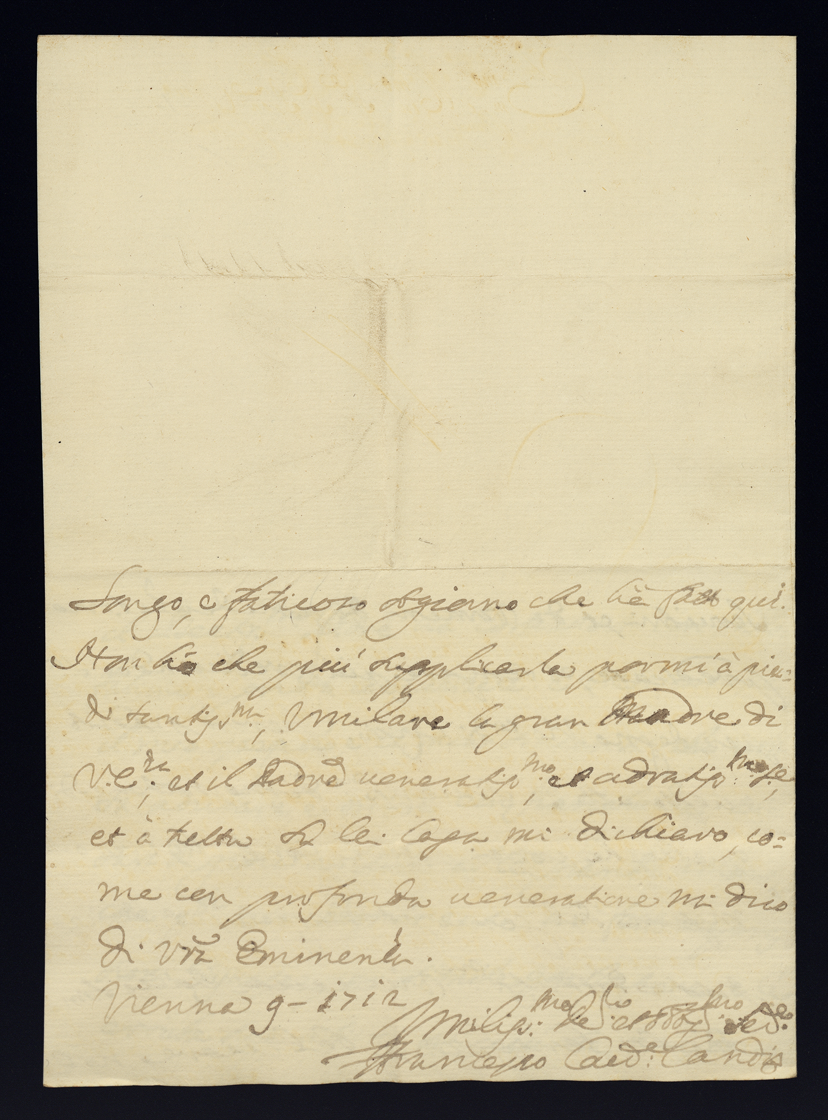 Longo, e faticoso sogiorno che hò fatto qui.
Non hò che più supplicarla pormi à pie=
di santiss.mi, Umilare la gran Madre di
V.E.za, et il Padre veneratiss.mo, et adoratiss.mo
et à tutta la lei Casa mi dichiaro, co=
me con profonda veneratione mi dico
di Vrã Eminenza.
Vienna 9- 1712
Umiliss.mo et obbl.mo
Francesco Card.e